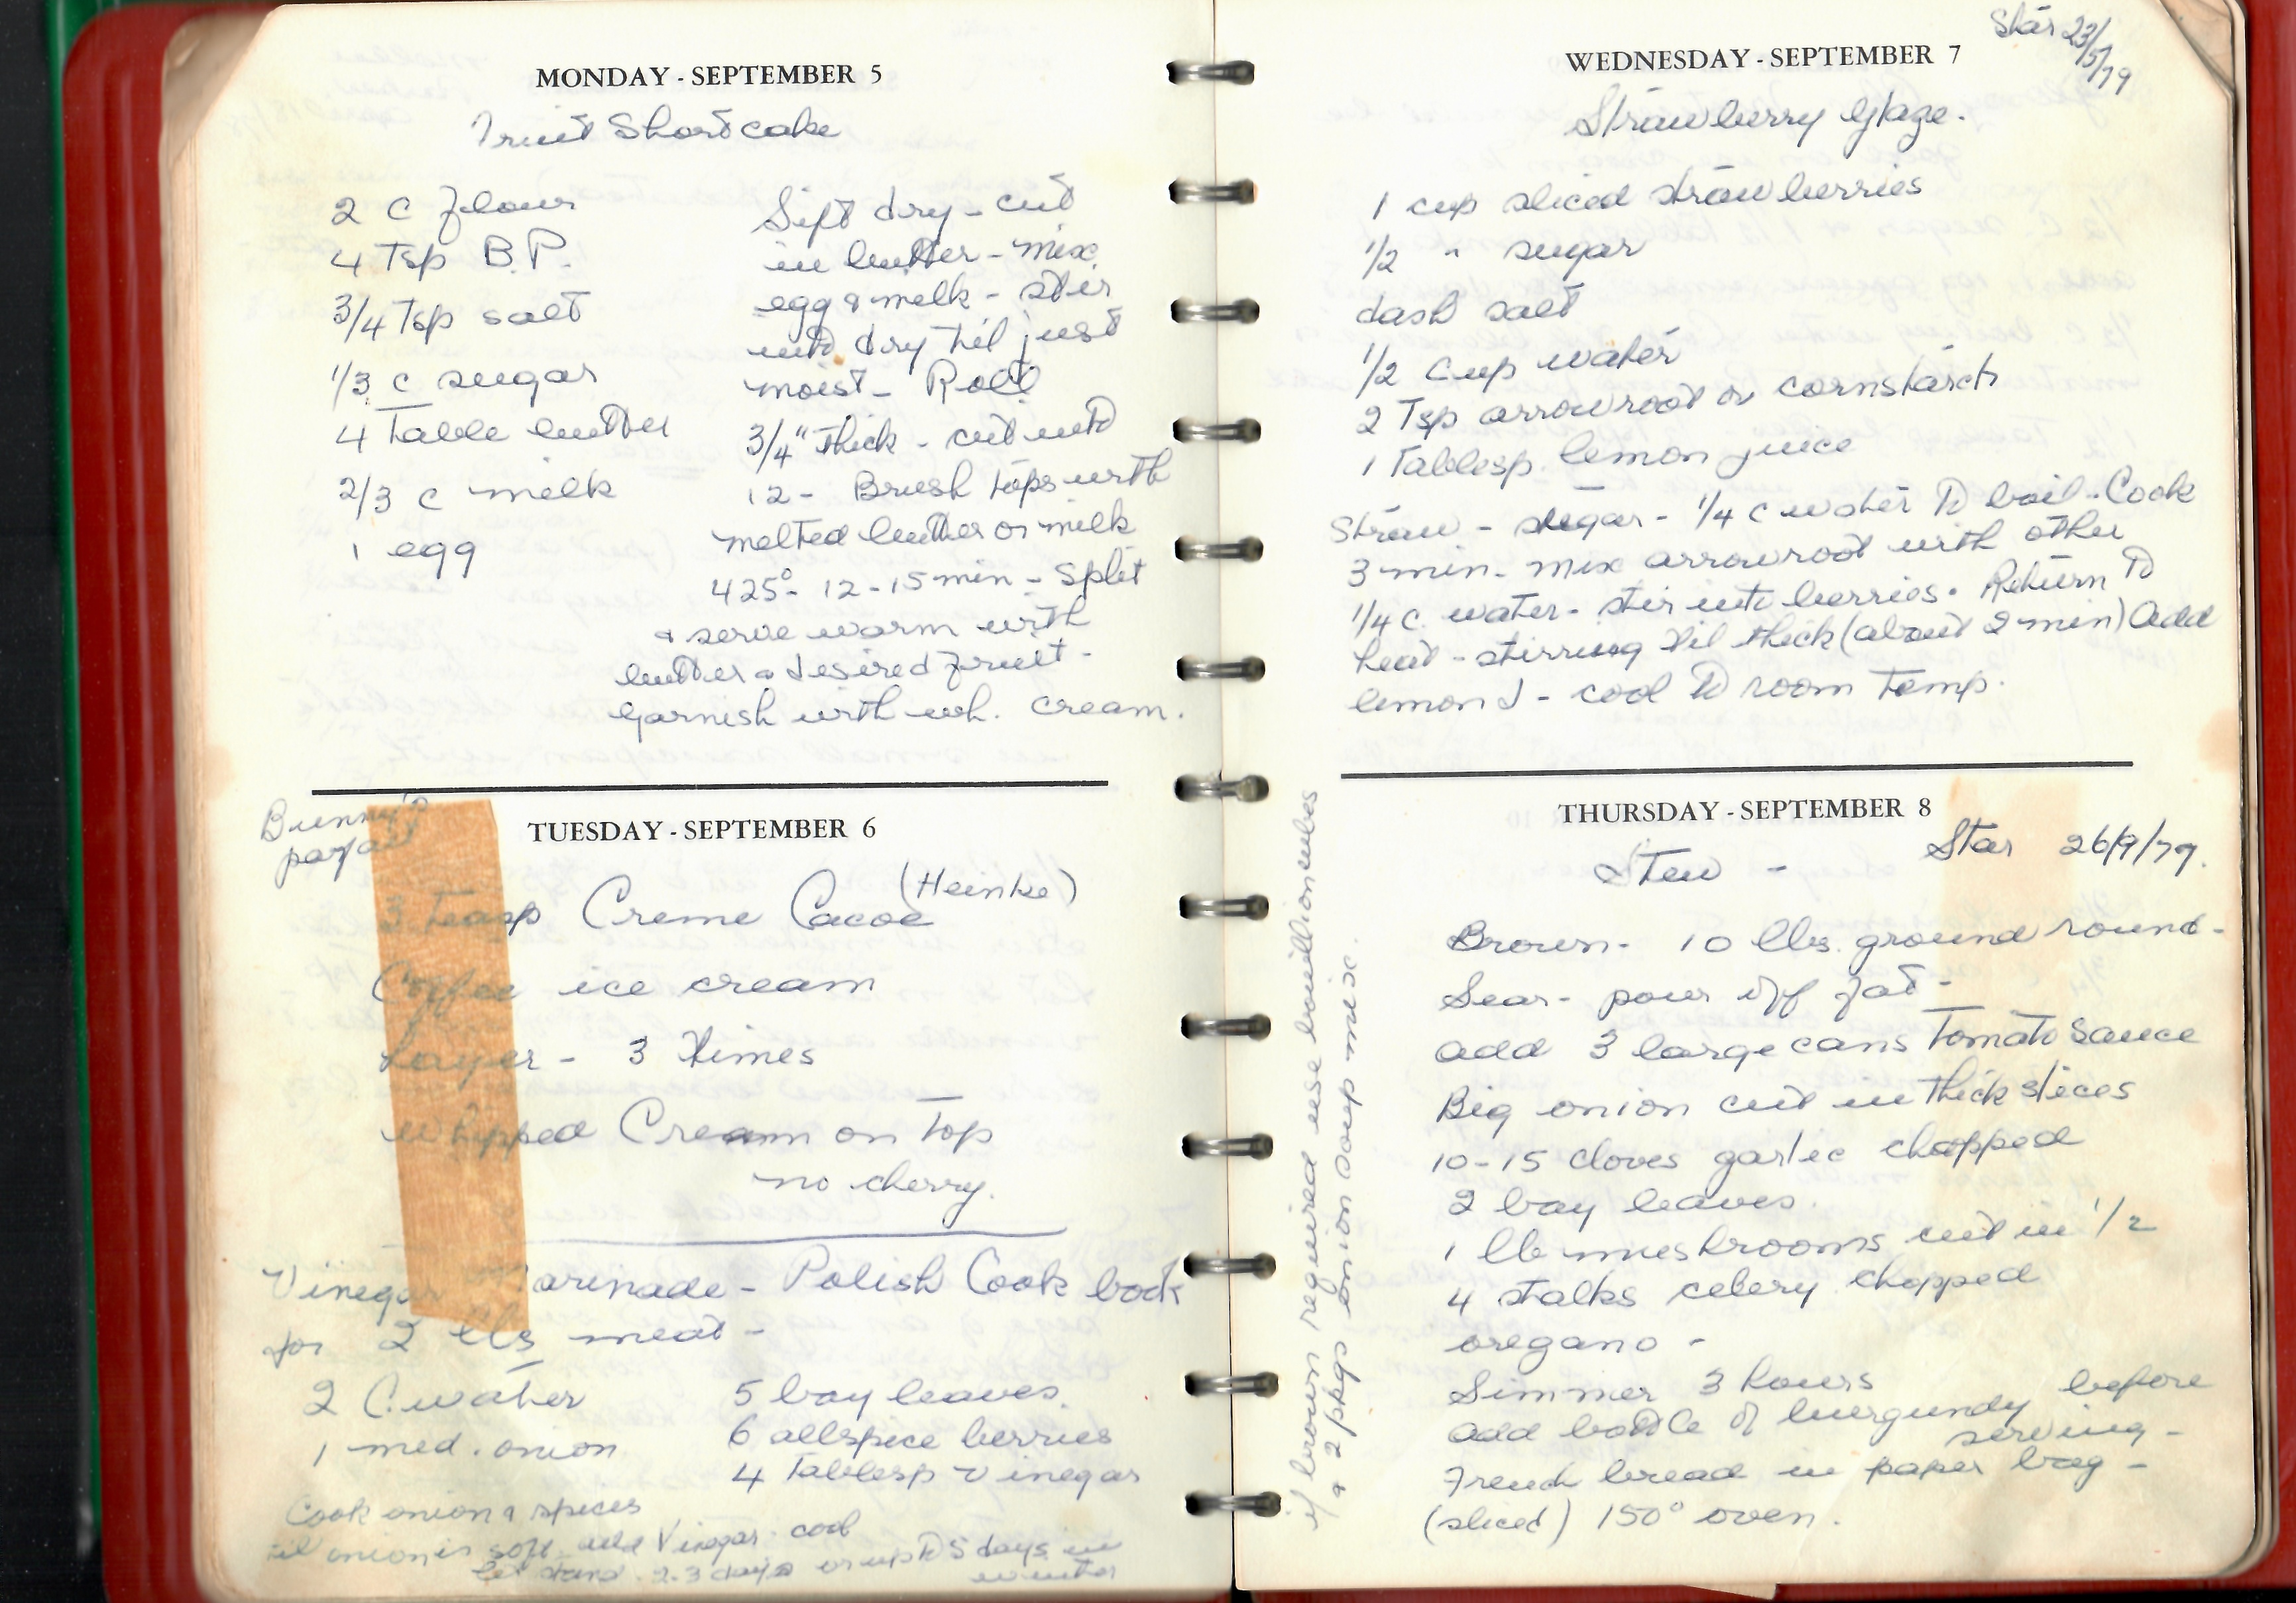 MONDAY - SEPTEMBER 5
Fruit Shortcake
2 C flour
4 Tsp B.P.
3/4 Tsp salt
1/3 c sugar
4 Table butter
2/3 c milk
1 egg
Sift dry - cut
in butter - mix
egg & milk - stir
into dry til just
moist - Roll
3/4" thick - cut into
12 - Brush tops with
melted butter or milk
425° - 12-15 min - Split
& serve warm with
butter & desired fruit -
Garnish with wh. cream.
TUESDAY - SEPTEMBER 6
Bunny's
parfait
(Heinke)
3 teasp Creme Cacoe
Coffee ice cream
Layer - 3 times
Whipped Cream on top
no cherry.
Vinegar Marinade - Polish Cook book
for 2 lbs meat -
2 C. water
1 med. onion
5 bay leaves.
6 allspice berries
4 Tablesp vinegar
Cook onion & spices
til onion is soft add Vinegar - cool
let stand 2-3 days or up to 5 days in
winter
WEDNESDAY - SEPTEMBER 7
Star 23/5/79
Strawberry Glaze.
1 cup sliced strawberries
1/2 " sugar
dash salt
1/2 cup water
2 Tsp arrowroot or cornstarch
1 Tablesp. lemon juice
Straw - sugar - 1/4 c water to boil - Cook
3 min - mix arrowroot with other
1/4 c. water - stir into berries. Return to
heat - stirring til thick (about 2 min) Add
lemon J - cool to room temp.
THURSDAY - SEPTEMBER 8
Stew - Star 26/9/79.
Brown - 10 lbs. ground round -
Sear - pour off fat -
add 3 large cans Tomato Sauce
Big onion cut in thick slices
10-15 cloves garlic chopped
2 bay leaves.
1 lb mushrooms cut in 1/2
4 stalks celery chopped
oregano -
Simmer 3 hours
add bottle of burgundy before
serving -
French bread in paper bag -
(sliced) 150° oven.
if brown required use bouillion cubes
& 2 pkgs onion soup mix.